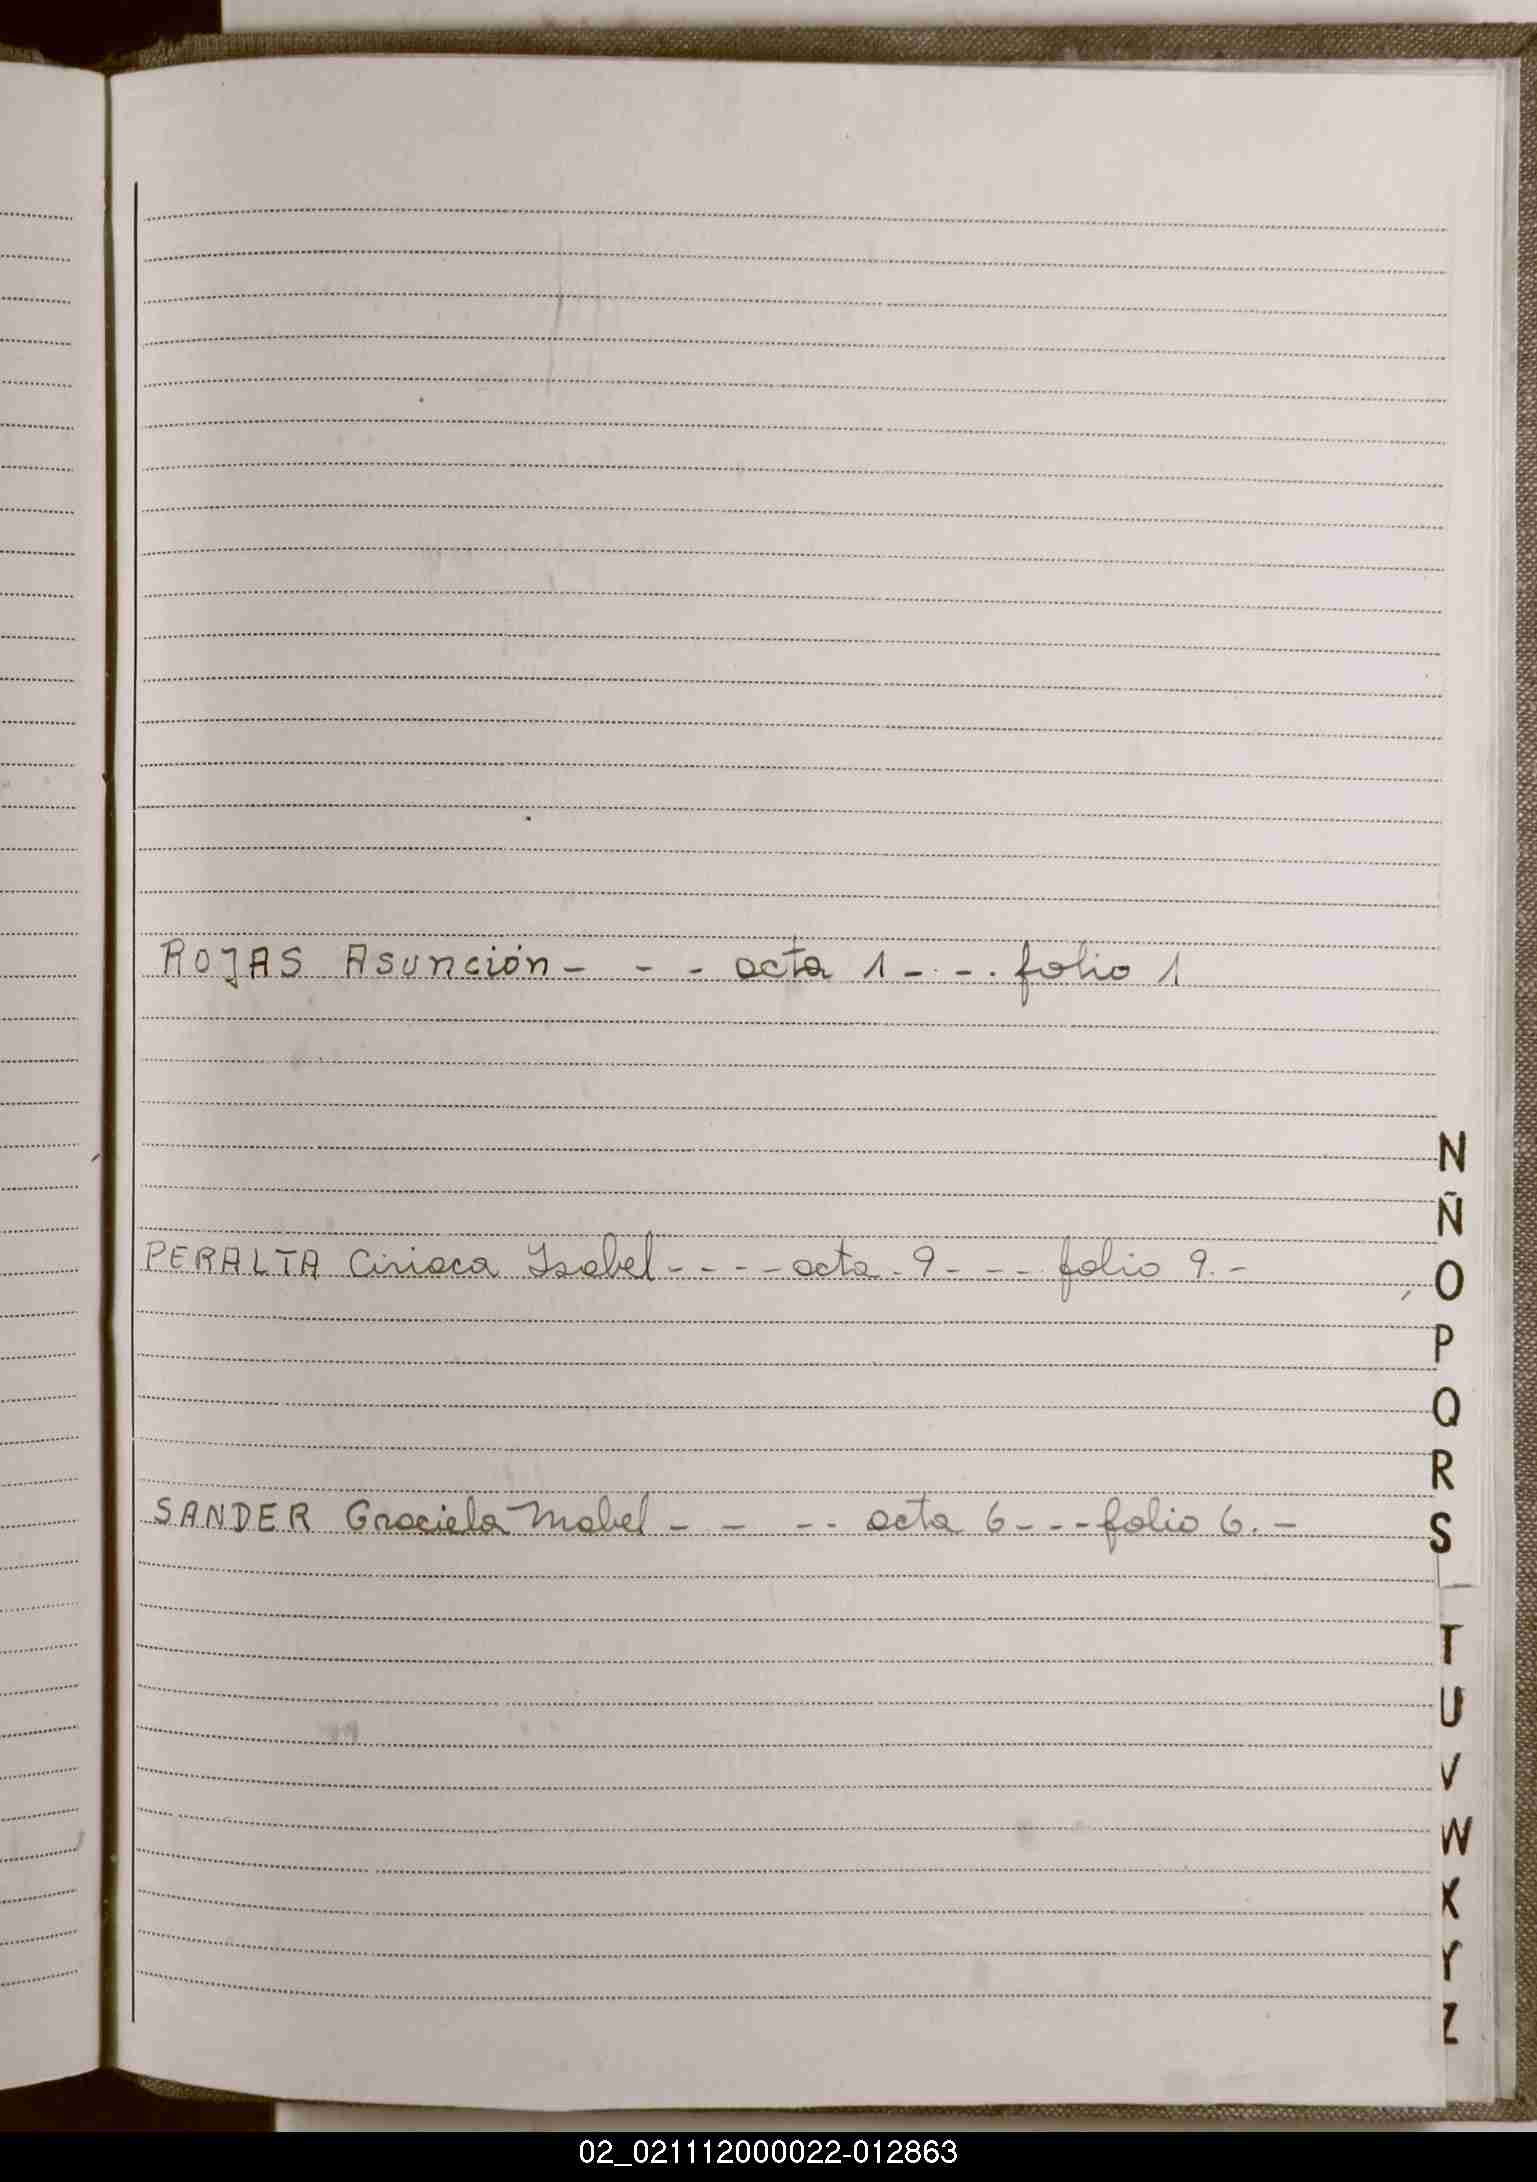 ROJAS Asunción - - - acta 1 - - . folio 1
N
Ñ
PERALTA Ciriaca Isabel - - - - acta 9 - - - folio 9. -
O
P
Q
R
SANDER Graciela Mabel - - - - acta 6 - - - folio 6. -
S
T
U
V
W
X
Y
Z
02_021112000022-012863